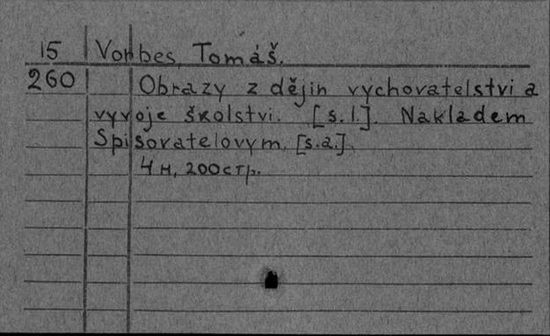 15 Vorbes, Tomáš.
260 Obrazy z dějin vychovatelstvi a
vyvoje školstvi. [s.l.]. Nakladem
Spisovatelovym. [s.a.].
4 н, 200 стр.